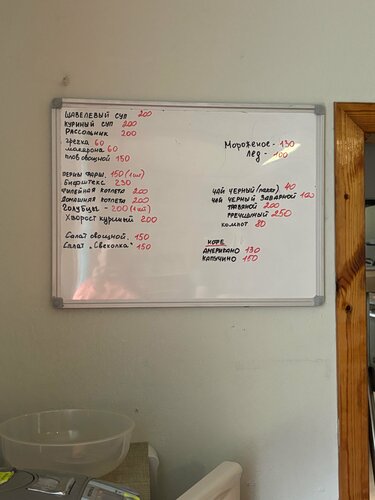 Щавелевый суп 200
Куриный суп 200
Рассольник 200
гречка 60
макарона 60
плов овощной 150
перцы фарш. 150 (1шт)
Бифштекс 230
Филейная котлета 200
Домашняя котлета 200
Голубцы - 200 (1шт)
Хворост куриный 200
Салат овощной. 150
Салат "Свеколка" 150
Мороженое - 130
лёд - 100
чай черный (пакет) 40
чай черный заварной 100
травяной 200
гречишный 250
компот 80
кофе
американо 130
капучино 150